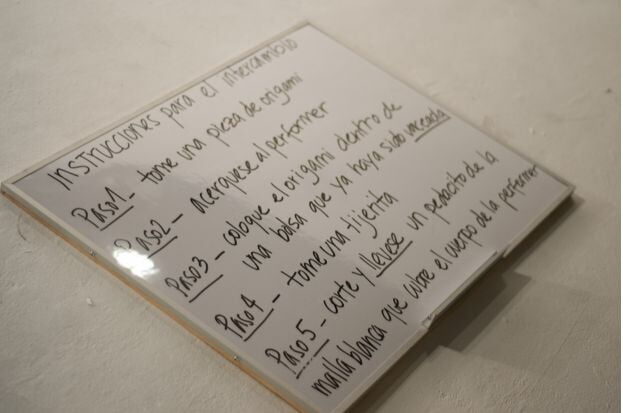 Instrucciones para el intercambio
Paso 1 - tome una pieza de origami
Paso 2 - acerquese al performer
Paso 3 - coloque el origami dentro de
una bolsa que ya haya sido vaceada
Paso 4 - tome una tijerita
Paso 5 - corte y llevese un pedacito de la
malla blanca que cubre el cuerpo de la performer